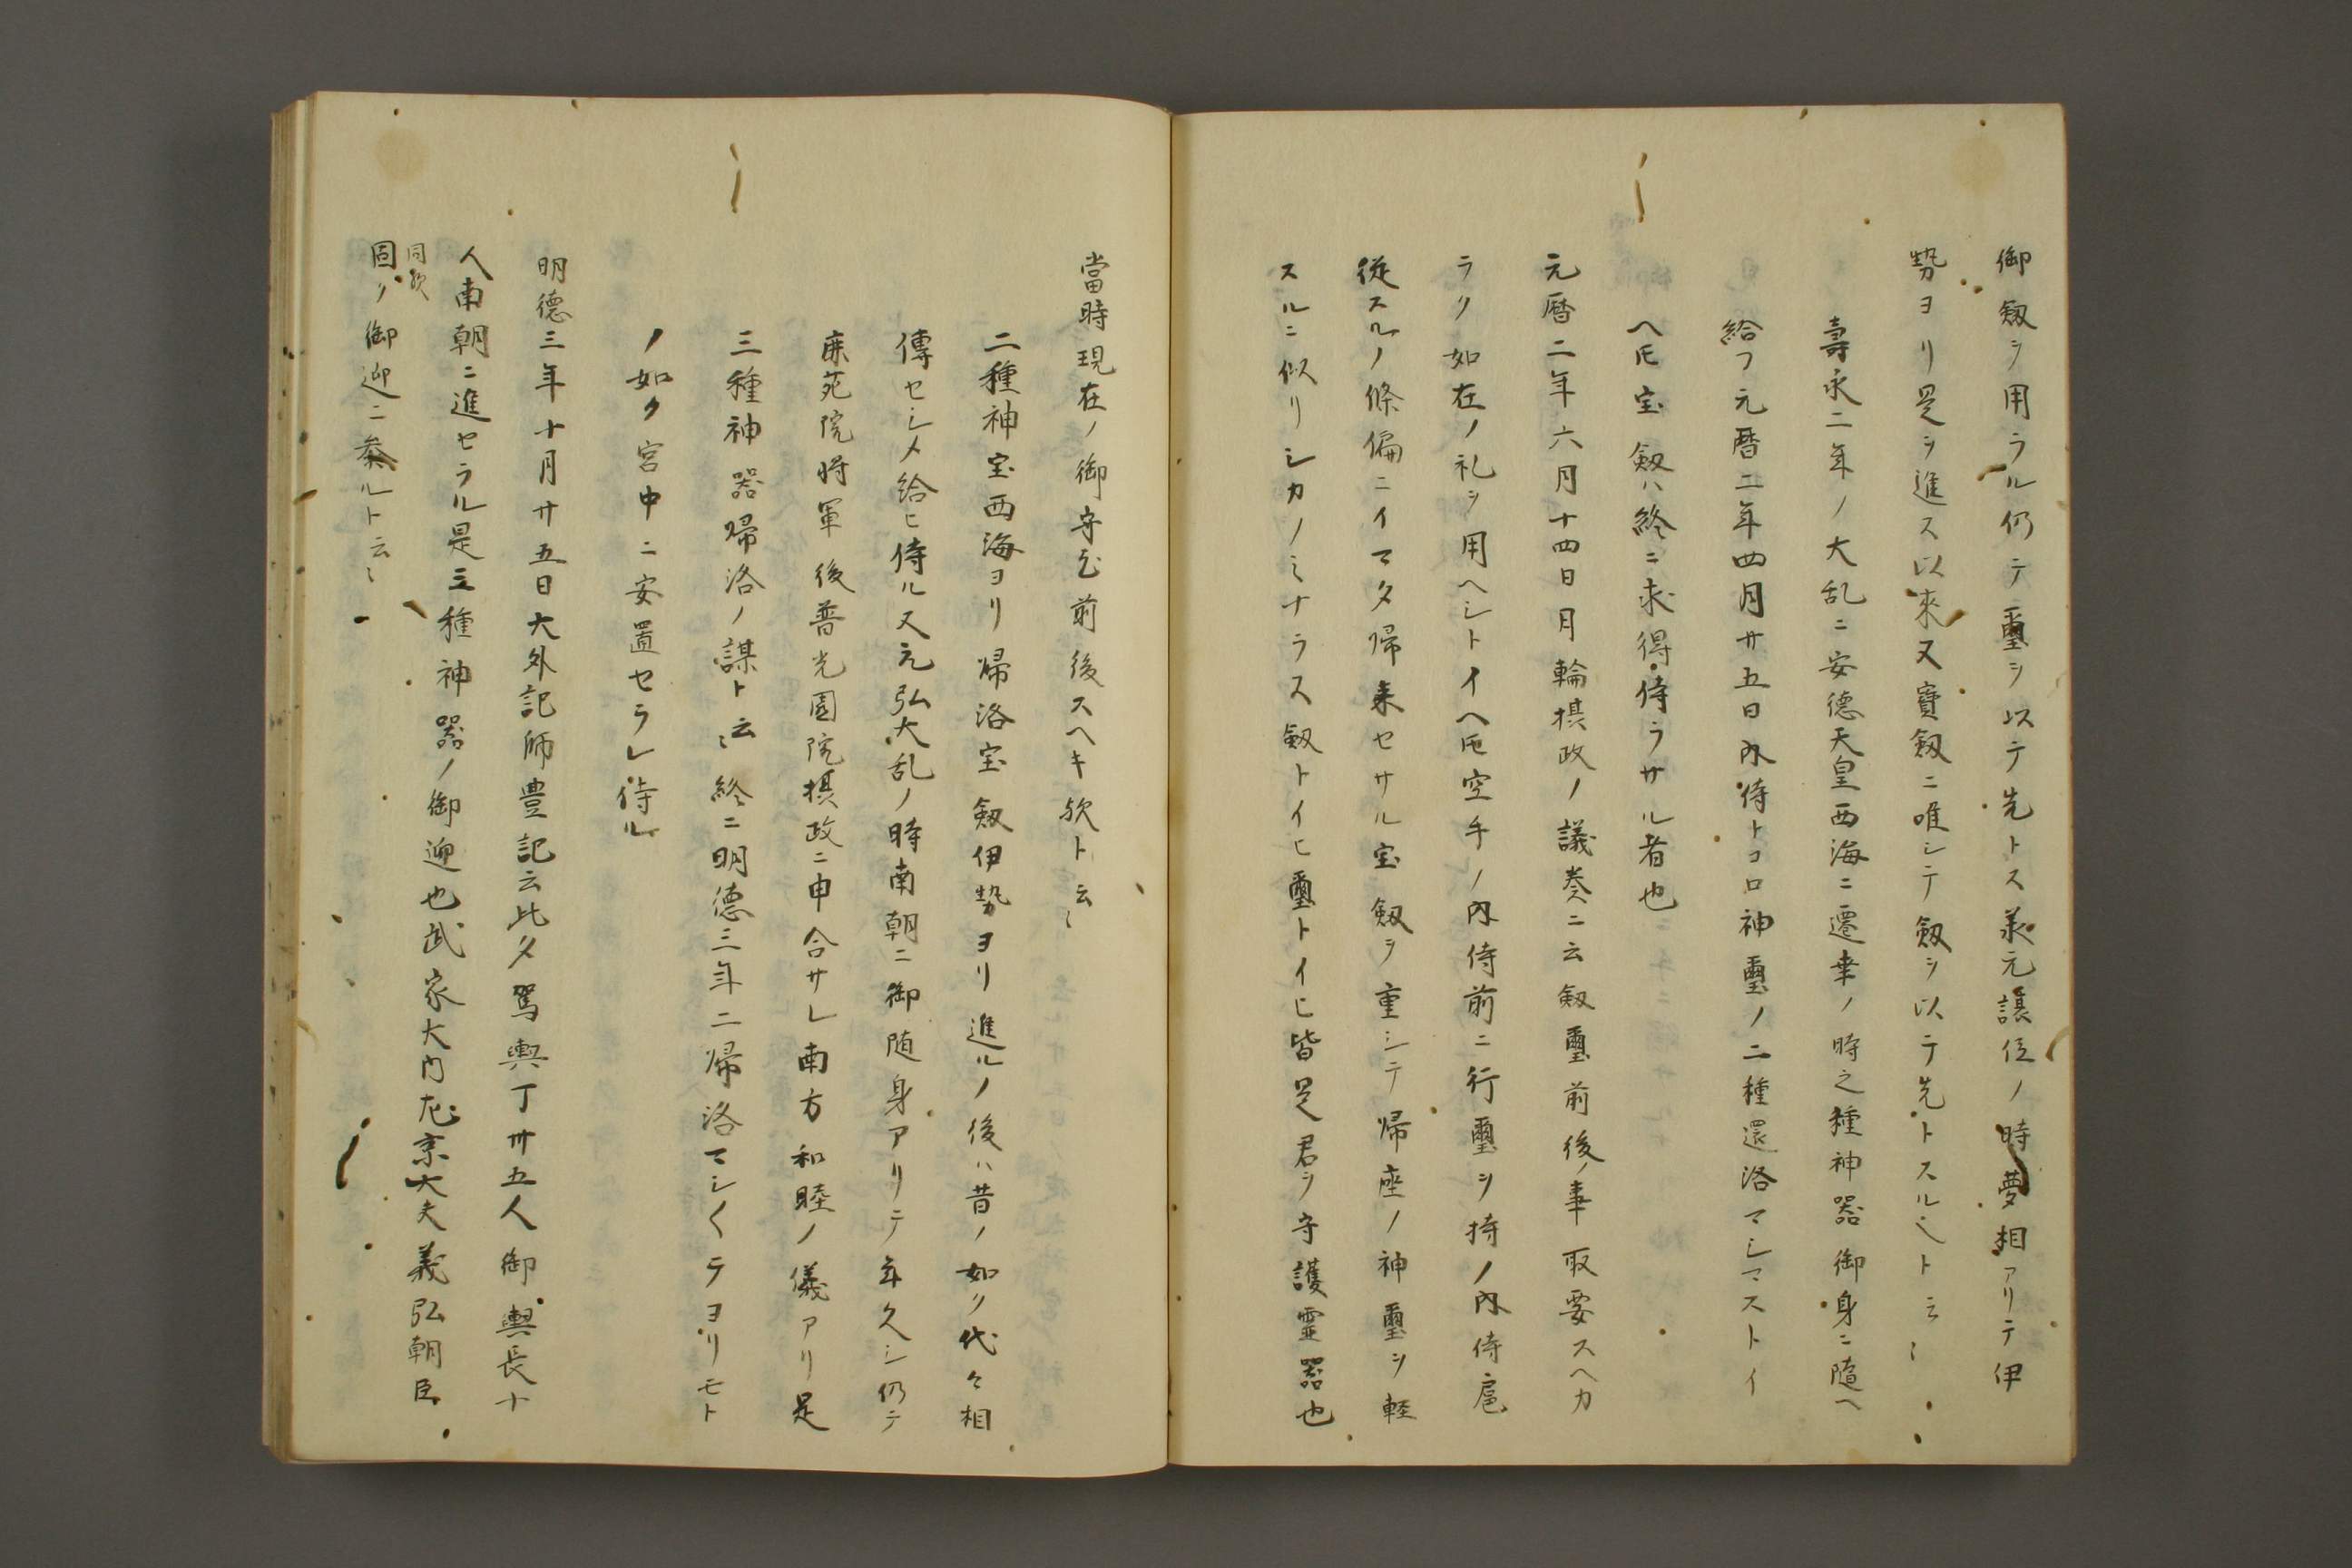 御剱ヲ用ラル仍テ璽ヲ以テ先トス義元譲位ノ時夢相アリテ伊
勢ヨリ是ヲ進ス以来又寶剱ニ唯シテ剱ヲ以テ先トスルヘトミ云〻
壽永二年ノ大乱ニ安德天皇西海ニ遷幸ノ時之種神器御身ニ隨ヘ
給フ元暦二年四月廿五日内侍トコロ神璽ノ二種還洛マシマストイ
ヘ𪜈宝剱ハ終ニ求得侍ラサル者也
元暦二年六月十四日月輪摂政ノ議奏ニ云剱璽前後ノ事取要スヘカ
ラク如在ノ礼ヲ用ヘシトイヘ𪜈空手ノ内侍前ニ行璽ヲ持ノ内侍扈
従スルノ條偏ニイマタ帰来セサル宝剱ヲ重シテ帰座ノ神璽ヲ軽
スルニ似リシカノミナラス剱トイヒ璽トイヒ皆是君ヲ守護霊器也
當時現在ノ御守乞前後スヘキ欤ト云〻
二種神宝西海ヨリ帰洛宝剱伊勢ヨリ進ルノ後ハ昔ノ如ク代々相
傳セシメ給ヒ侍ル又元弘大乱ノ時南朝ニ御随身アリテ年久シ仍テ
鹿苑院将軍後普光園院摂政ニ申合サレ南方和睦ノ儀アリ是
三種神器帰洛ノ謀ト云〻終ニ明德三年二帰洛マシ〱テヨリモト
ノ如ク宮中ニ安置セラレ侍ル
明德三年十月廿五日大外記師豊記云此夕駕輿丁卅五人御輿長十
人南朝ニ進セラル是三種神器ノ御迎也武家大内左京大夫義弘朝臣
同欤
固ク御迎ニ参ルト云〻